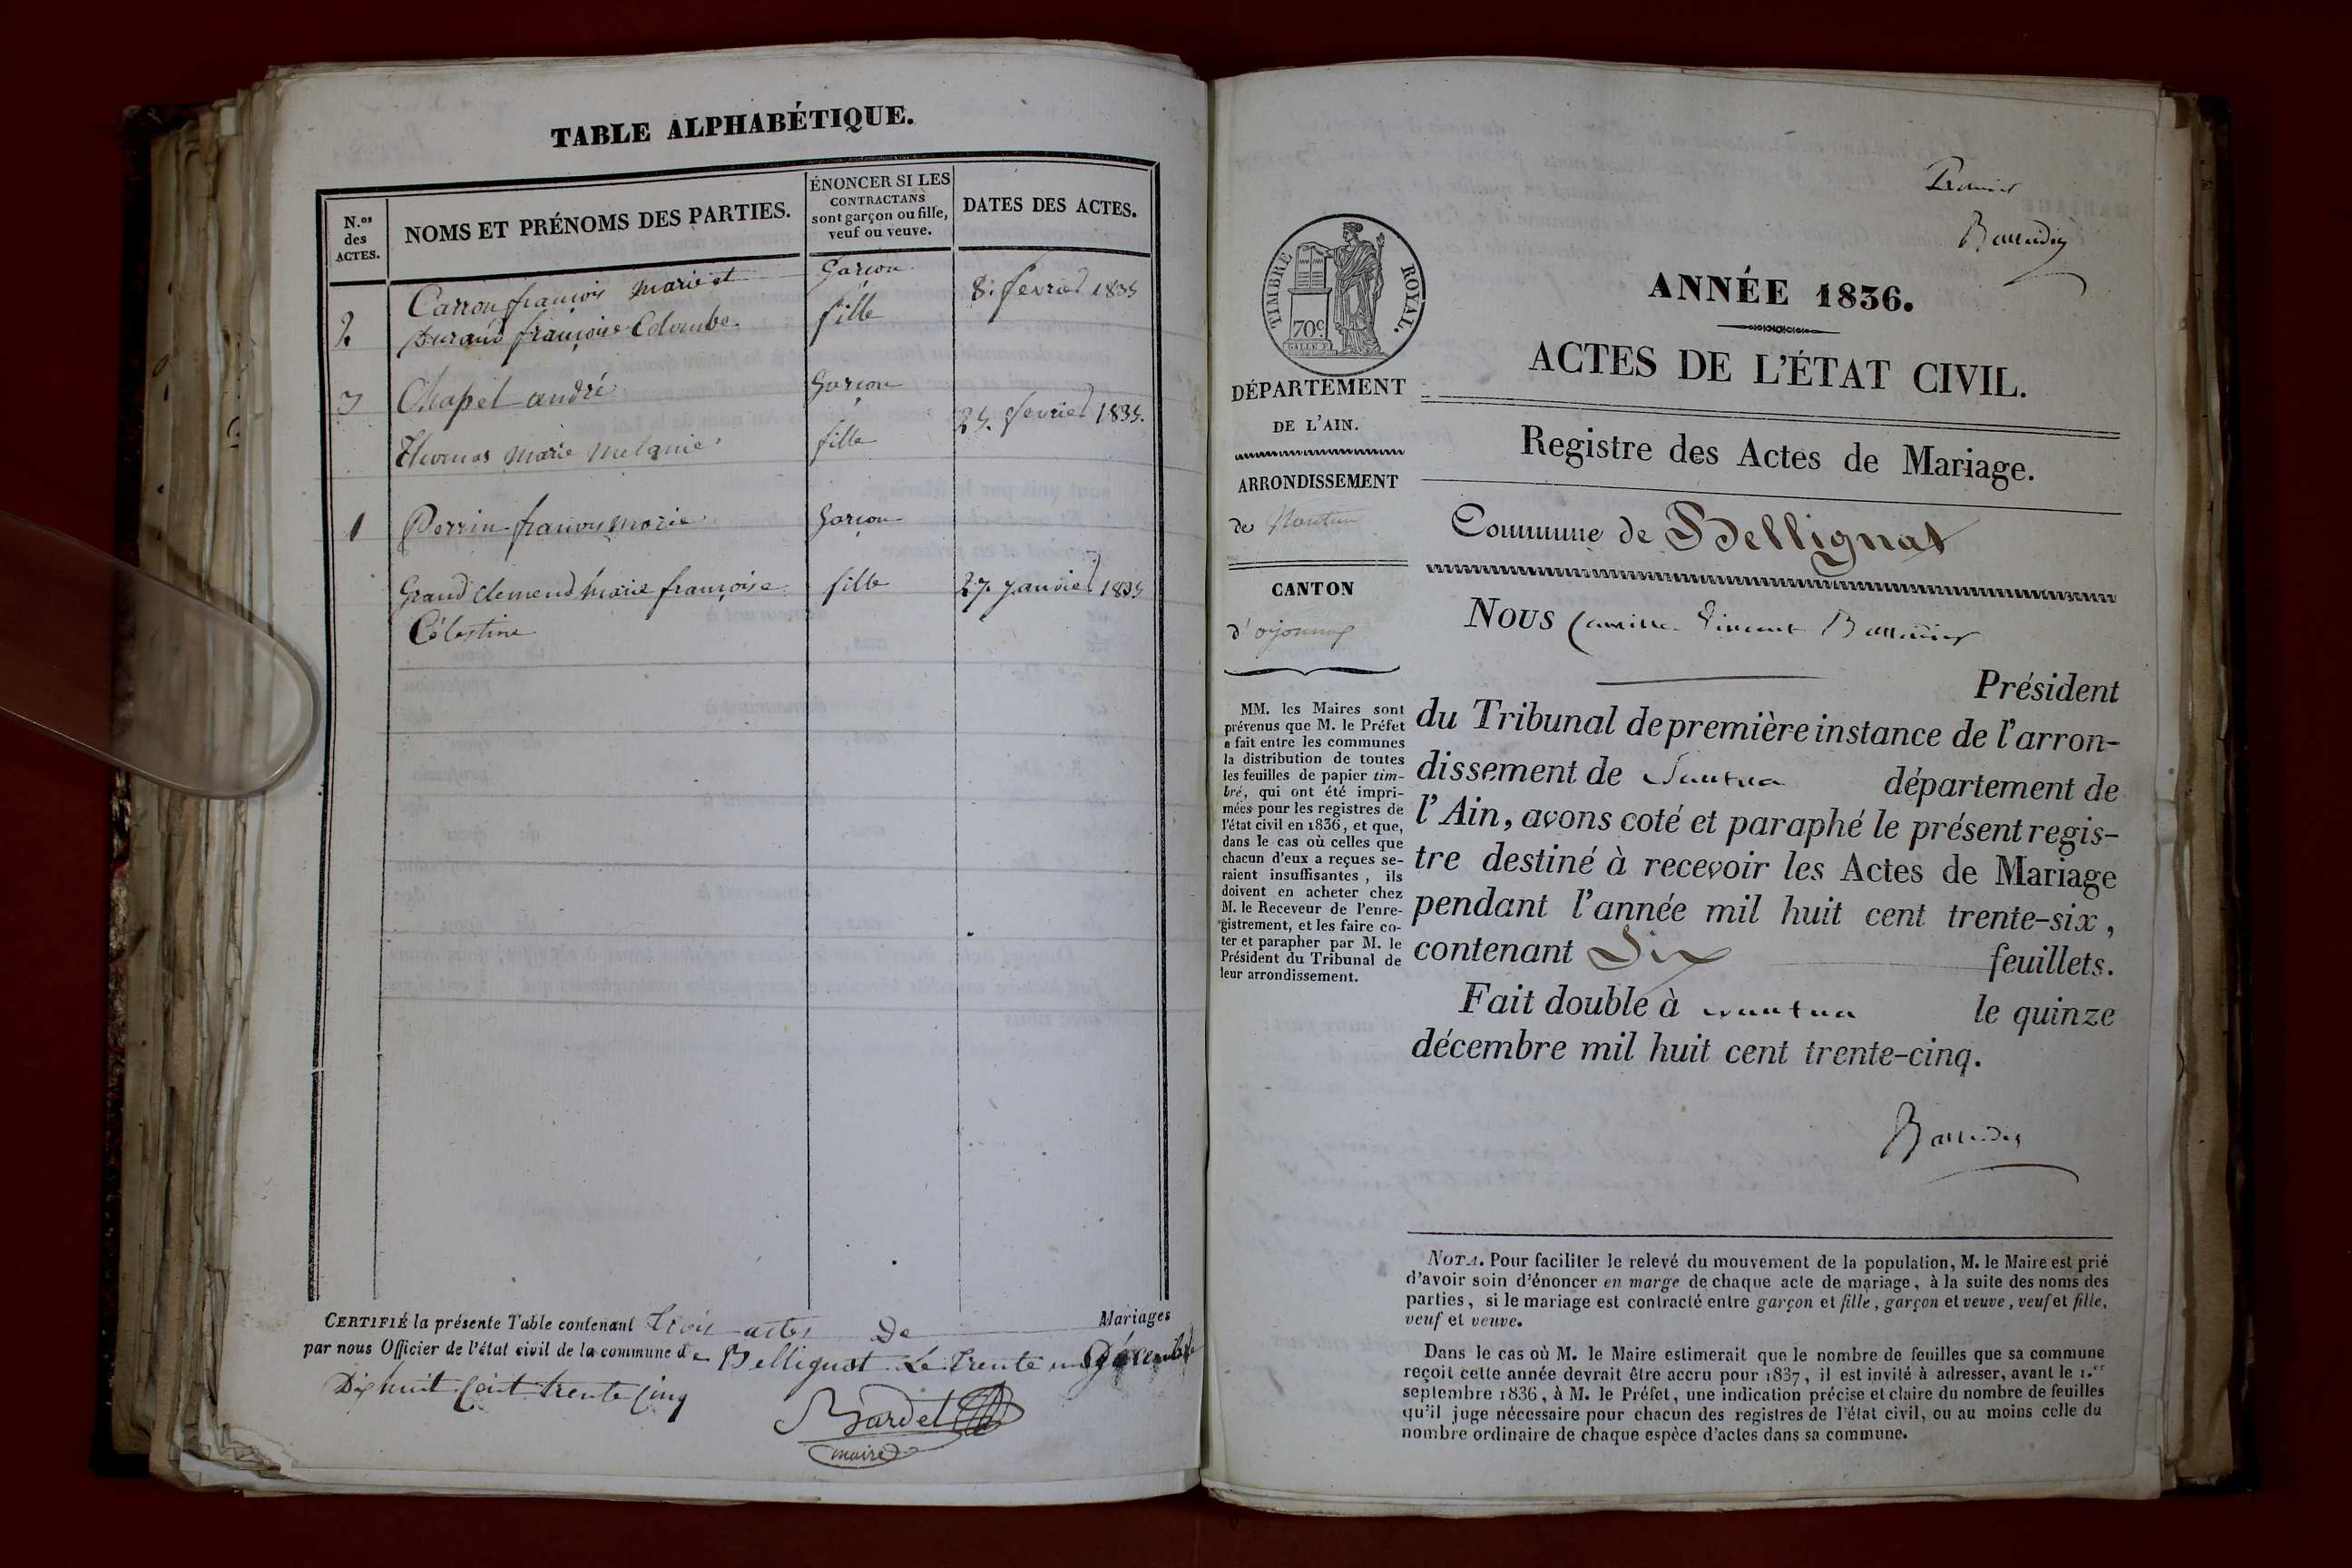 TABLE ALPHABÉTIQUE.
N.os des ACTES.
NOMS ET PRÉNOMS DES PARTIES.
ÉNONCER SI LES
CONTRACTANS
sont garçon ou fille,
veuf ou veuve.
DATES DES ACTES.
2 Carron françois marie et Garcon 8. fevrier 1835
Durand françoise Colombe fille
3 Chapel andré Garcon
25. fevrier 1835.
Thomas marie melanie fille
1 Perrin françois marie Garcon
Grand clemend marie françoise fille 27 janvier 1835
Célestine
CERTIFIÉ la présente Table contenant trois actes De Mariages
par nous Officier de l'état civil de la commune de Bellignat Le trente un Décembre
Dix huit Cent trente Cinq
Bardet
maire
Premier
TIMBRE ROYAL.
70c
DÉPARTEMENT
DE L'AIN.
ARRONDISSEMENT
de Nantua
CANTON
d'oyonnax
MM. les Maires sont
prévenus que M. le Préfet
a fait entre les communes
la distribution de toutes
les feuilles de papier tim-
bré, qui ont été impri-
mées pour les registres de
l'état civil en 1836, et que,
dans le cas où celles que
chacun d'eux a reçues se-
raient insuffisantes, ils
doivent en acheter chez
M. le Receveur de l'enre-
gistrement, et les faire co-
ter et parapher par M. le
Président du Tribunal de
leur arrondissement.
ANNÉE 1836.
ACTES DE L'ÉTAT CIVIL.
Registre des Actes de Mariage.
Commune de Bellignat
Nous Camille Vincent
Président
du Tribunal de première instance de l'arron-
dissement de Nantua département de
l'Ain, avons coté et paraphé le présent regis-
tre destiné à recevoir les Actes de Mariage
pendant l'année mil huit cent trente-six,
contenant Six feuillets.
Fait double à nantua le quinze
décembre mil huit cent trente-cinq.
NOTA. Pour faciliter le relevé du mouvement de la population, M. le Maire est prié
d'avoir soin d'énoncer en marge de chaque acte de mariage, à la suite des noms des
parties, si le mariage est contracté entre garçon et fille, garçon et veuve, veuf et fille,
veuf et veuve.
Dans le cas où M. le Maire estimerait que le nombre de feuilles que sa commune
reçoit cette année devrait être accru pour 1837, il est invité à adresser, avant le 1.er
septembre 1836, à M. le Préfet, une indication précise et claire du nombre de feuilles
qu'il juge nécessaire pour chacun des registres de l'état civil, ou au moins celle du
nombre ordinaire de chaque espèce d'actes dans sa commune.